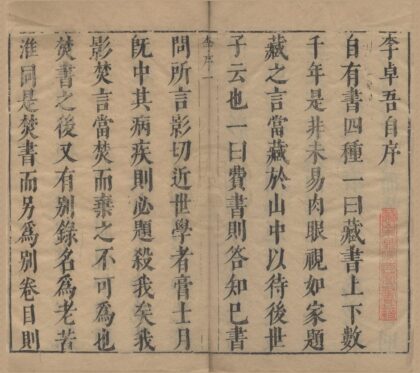 李卓吾自序
自有書四種一曰藏書上下數
千年是非未易肉眼視如家題
藏之言當藏於山中以待後世
子云也一曰費書則答知已書
問所言影切近世學者嘗士月
旣中其病疾則必題殺我矣我
影焚言當焚而棄之不可爲也
焚書之後又有別錄名爲老苦
淮同是焚書而另爲別卷目則